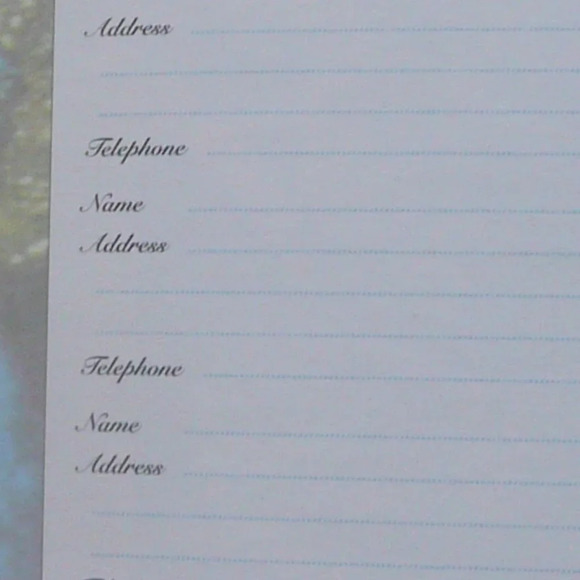 Address
Telephone
Name
Address
Telephone
Name
Address